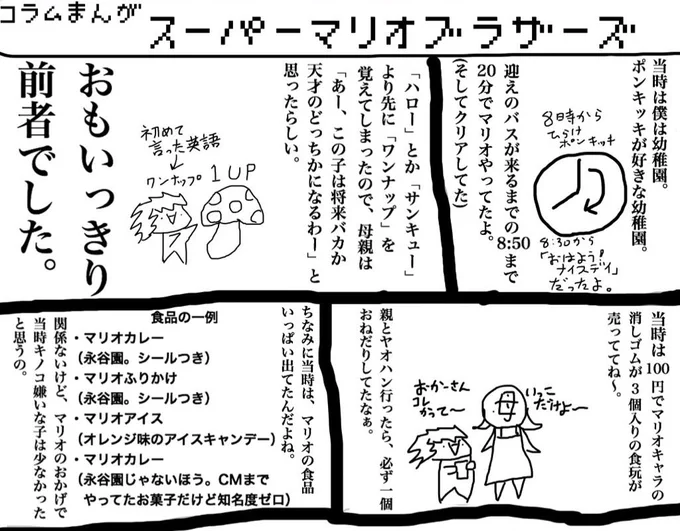 コラムまんが
スーパーマリオブラザーズ
当時は僕は幼稚園。
ポンキッキが好きな幼稚園。
8時から
ひらけ
ポンキッキ
8:30から
「おはよう!
ナイスデイ」
だったよ。
迎えのバスが来るまでの8:50まで
20分でマリオやってたよ。
(そしてクリアしてた)
「ハロー」とか「サンキュー」
より先に「ワンナップ」を
覚えてしまったので、母親は
「あー、この子は将来バカか
天才のどっちかになるわー」と
思ったらしい。
初めて
言った英語
ワンナップ
1UP
おもいっきり
前者でした。
当時は100円でマリオキャラの
消しゴムが3個入りの食玩が
売っててね〜。
いっこ
だけよ〜
母
おかーさん
コレ
かって〜
親とヤオハン行ったら、必ず一個
おねだりしてたなぁ。
ちなみに当時は、マリオの食品
いっぱい出てたんだよね。
食品の一例
・マリオカレー
(永谷園。シールつき)
・マリオふりかけ
(永谷園。シールつき)
・マリオアイス
(オレンジ味のアイスキャンデー)
・マリオカレー
(永谷園じゃないほう。CMまで
やってたお菓子だけど知名度ゼロ)
関係ないけど、マリオのおかげで
当時キノコ嫌いな子は少なかった
と思うの。